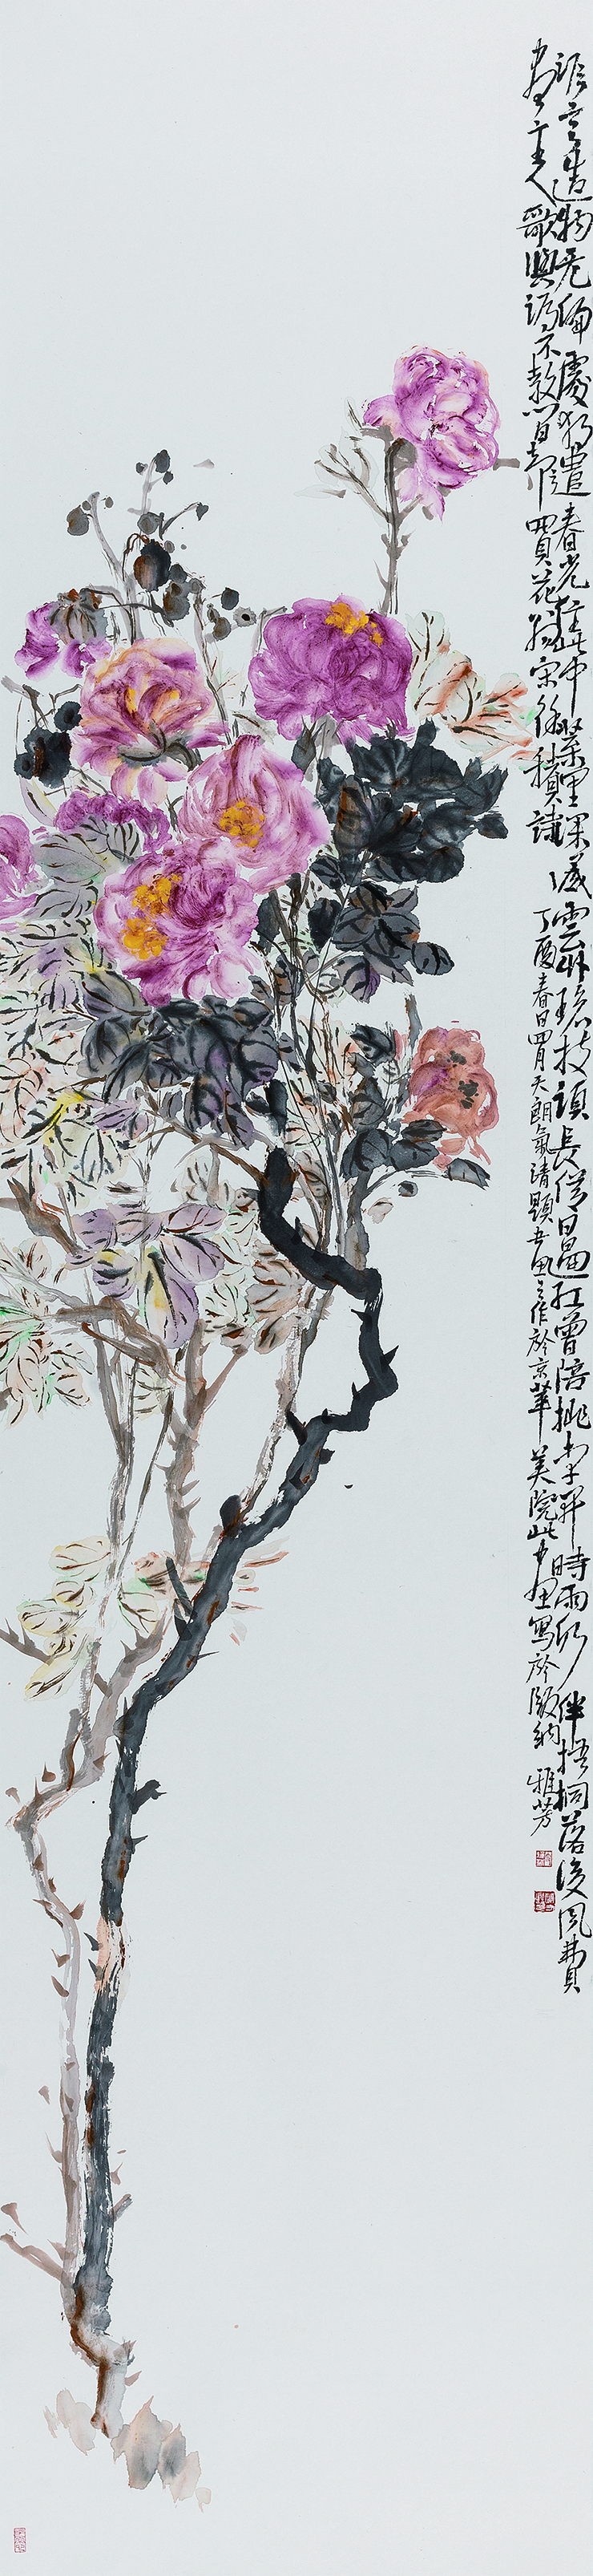 誰言造物无偏處獨遣春光住此中葉里深藏雲外碧枝頭長借日邊紅曾陪桃李開時雨仍伴梧桐落後風費
盡主人歌與酒不教閒却賣花翁宋徐積詩 丁酉春日四月天朗氣清題吾畫之作於京華美院此畫寫於 雅芳